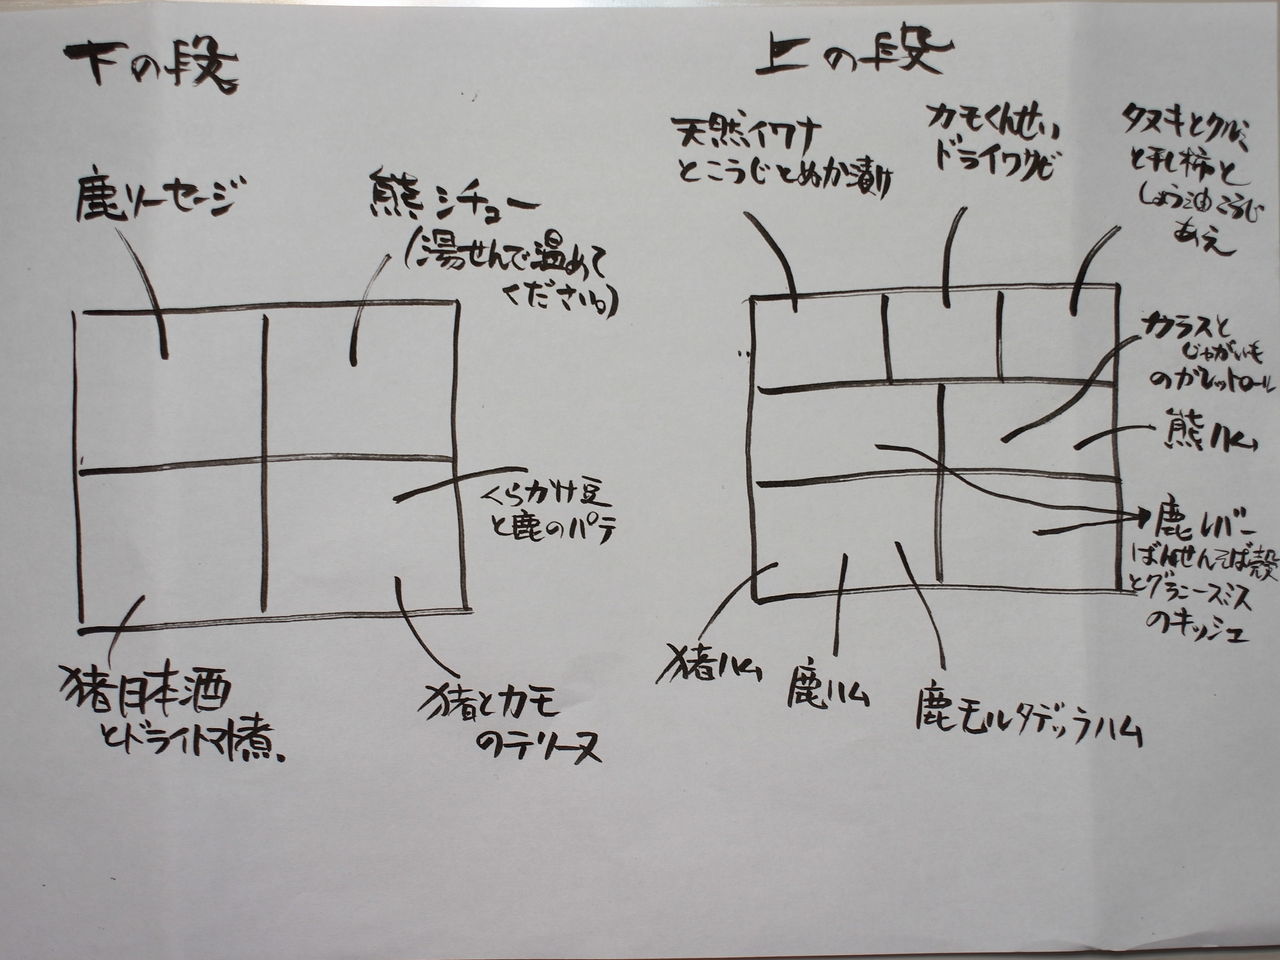 下の段
鹿ソーセージ
熊シチュー
(湯せんで温めて
ください。)
くらかけ豆
と鹿のパテ
猪日本酒
とドライトマト煮。
猪とカモ
のテリーヌ
上の段
天然イワナ
とこうじとぬか漬け
カモくんせい
ドライワサビ
タヌキとクルミ
と干し柿と
しょう油こうじ
あえ
カラスと
じゃがいも
のガレットロール
熊ハム
鹿レバー
そば殻
とグラニースミス
のキッシュ
猪ハム
鹿ハム
鹿モルタデッラハム